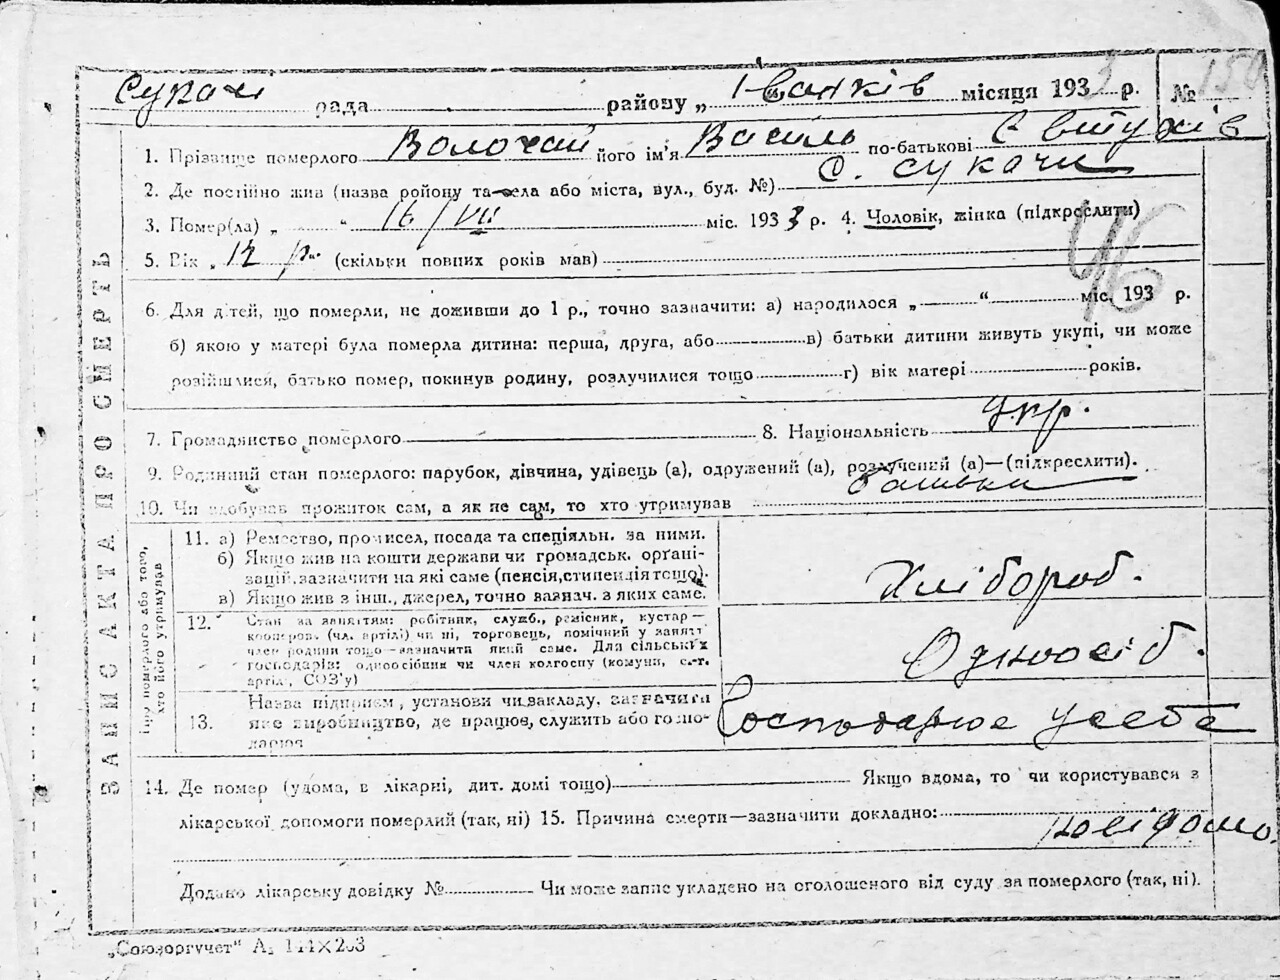 Сукачі рада районy „ Іванків місяця 1933 р. № 150
1. Прізвище померлого Волочай його ім'я Василь по-батькові Євтухів
2. Де постійно жив (назва району та села або міста, вул., буд. №) С. Сукачи
3. Помер(ла) „ “ 16/VII міс. 1933 р. 4. Чоловік, жінка (підкреслити)
46
5. Вік „ 12 р. (скільки повних років мав)
6. Для дітей, що померли, не доживши до 1 р., точно зазначити: а) народилося „ “ міс. 193 р.
б) якою у матері була померла дитина: перша, друга, або в) батьки дитини живуть укупі, чи може
розійшлися, батько помер, покинув родину, розлучилися тощо г) вік матері років.
7. Громадянство померлого 8. Національність Укр.
9. Родинний стан померлого: парубок, дівчина, удівець (а), одружений (а), розлучений (а)—(підкреслити).
10. Чи здобував прожиток сам, а як не сам, то хто утримував батьки
ЗАПИС АКТА ПРО СМЕРТЬ
Про померлого або того, хто його утримував
11. а) Ремество, промисел, посада та спеціяльн. за ними.
б) Якщо жив на кошти держави чи громадськ. орґані-
зацій, зазначити на які саме (пенсія, стипендія тощо).
в) Якщо жив з інш., джерел, точно вазнач. з яких саме.
Хлібороб.
12. Стан за заняттям: робітник, служб., ремісник, кустар—
коопеpов. (чл. артілі) чи ні, торговець, помічний у занятт
член родини тощо—зазначити який саме. Для сільських
господарів: одноосібник чи член колгоспу (комуни, с.-г.
артілі, СОЗ'у)
Одноосіб.
13. Назва підприєм., установи чи закладу, зазначити
яке виробництво, де працює, служить або госпо-
дарює
Господарює у себе
14. Де помер (удома, в лікарні, дит. домі тощо) Якщо вдома, то чи користувався з
лікарської допомоги померлий (так, ні) 15. Причина смерти—зазначити докладно:
Додано лікарську довідку № Чи може запис укладено на оголошеного від суду за померлого (так, ні).
„Союзоргучет“ А₅ 144×203